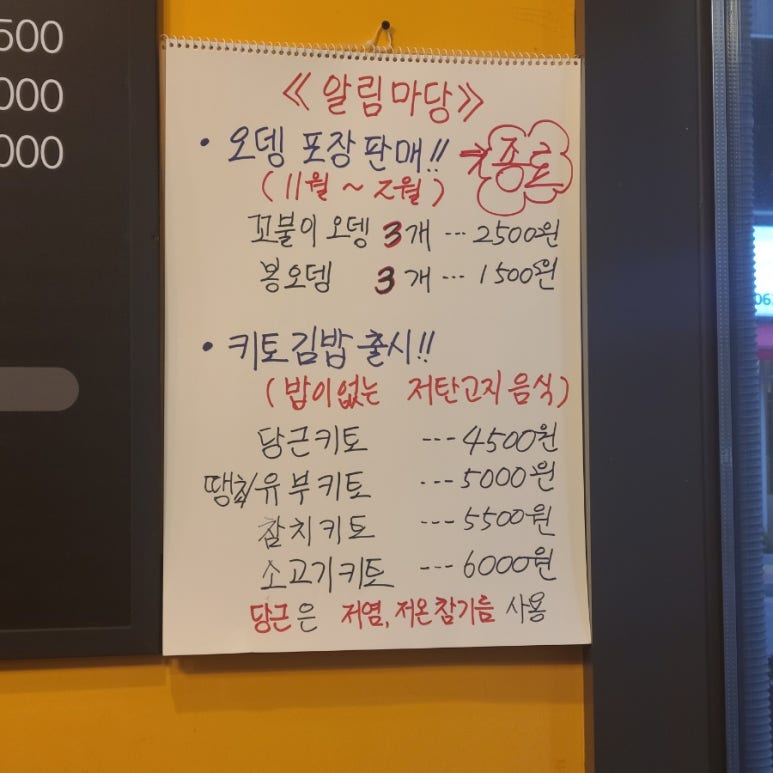 500
000
000
《알림마당》
• 오뎅 포장 판매!! → 종료
(11월 ~ 2월)
꼬불이 오뎅 3개 --- 2500원
봉오뎅 3개 --- 1500원
• 키토김밥 출시!!
(밥이없는 저탄고지 음식)
당근키토 --- 4500원
땡초/유부키토 --- 5000원
참치키토 --- 5500원
소고기키토 --- 6000원
당근은 저염, 저온참기름 사용
06